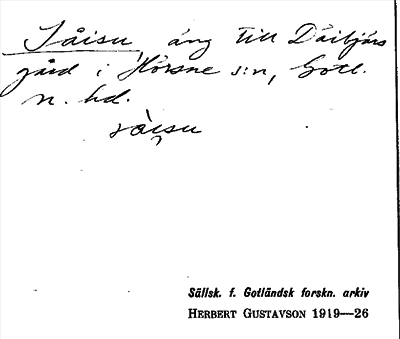 Såisu, äng till Dåibjärs
gård i Hörsne s:n, Gotl.
n. hd.
såisu
Sällsk. f. Gotländsk forskn. arkiv
HERBERT GUSTAVSON 1919—26